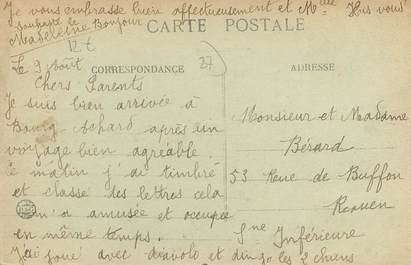 Je vous embrasse bien affectueusement et Mlle Hus vous
souhaite le
Madeleine Bonjour
CARTE POSTALE
Le 9 Août
CORRESPONDANCE
27
ADRESSE
Chers Parents
Je suis bien arrivée à
Bourg Achard après un
voyage bien agréable
ce matin j'ai timbré
et classé des lettres cela
m'a amusée et occupée
en même temps.
J'ai joué avec diavolo et les 2 chiens
Monsieur et Madame
Bérard
53 Rue de Buffon
Rouen
Sne Inférieure